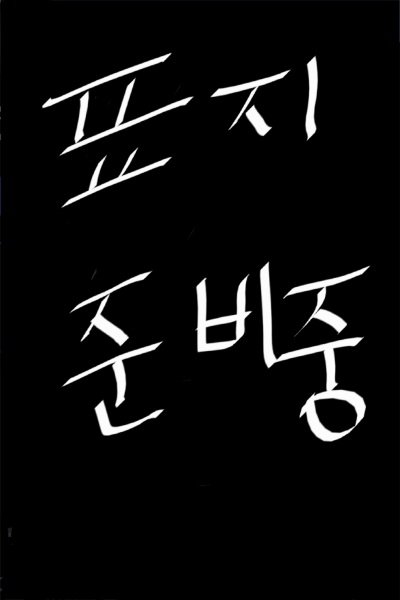 표지
준비중